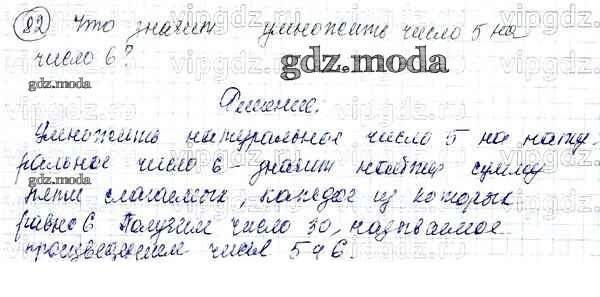 82 Что значит умножить число 5 на
число 6?
gdz.moda
Решение.
Умножить натуральное число 5 на нату-
gdz.moda
ральное число 6 - значит найти сумму
пяти слагаемых, каждое из которых
равно 6 Получим число 30, называемое
произведением чисел 5 и 6.